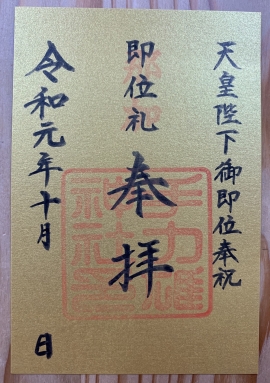 天皇陛下御即位奉祝
即位礼
奉拝
令和元年十月　日
手力雄
神社